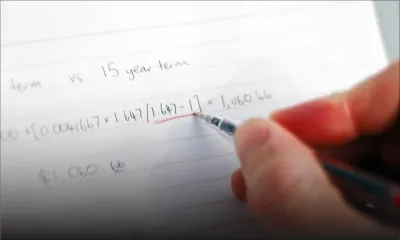 term vs. 15 year term
00 × [0.0041667 × 1.647/1.647-1] = 1,060.66
$1,060.66